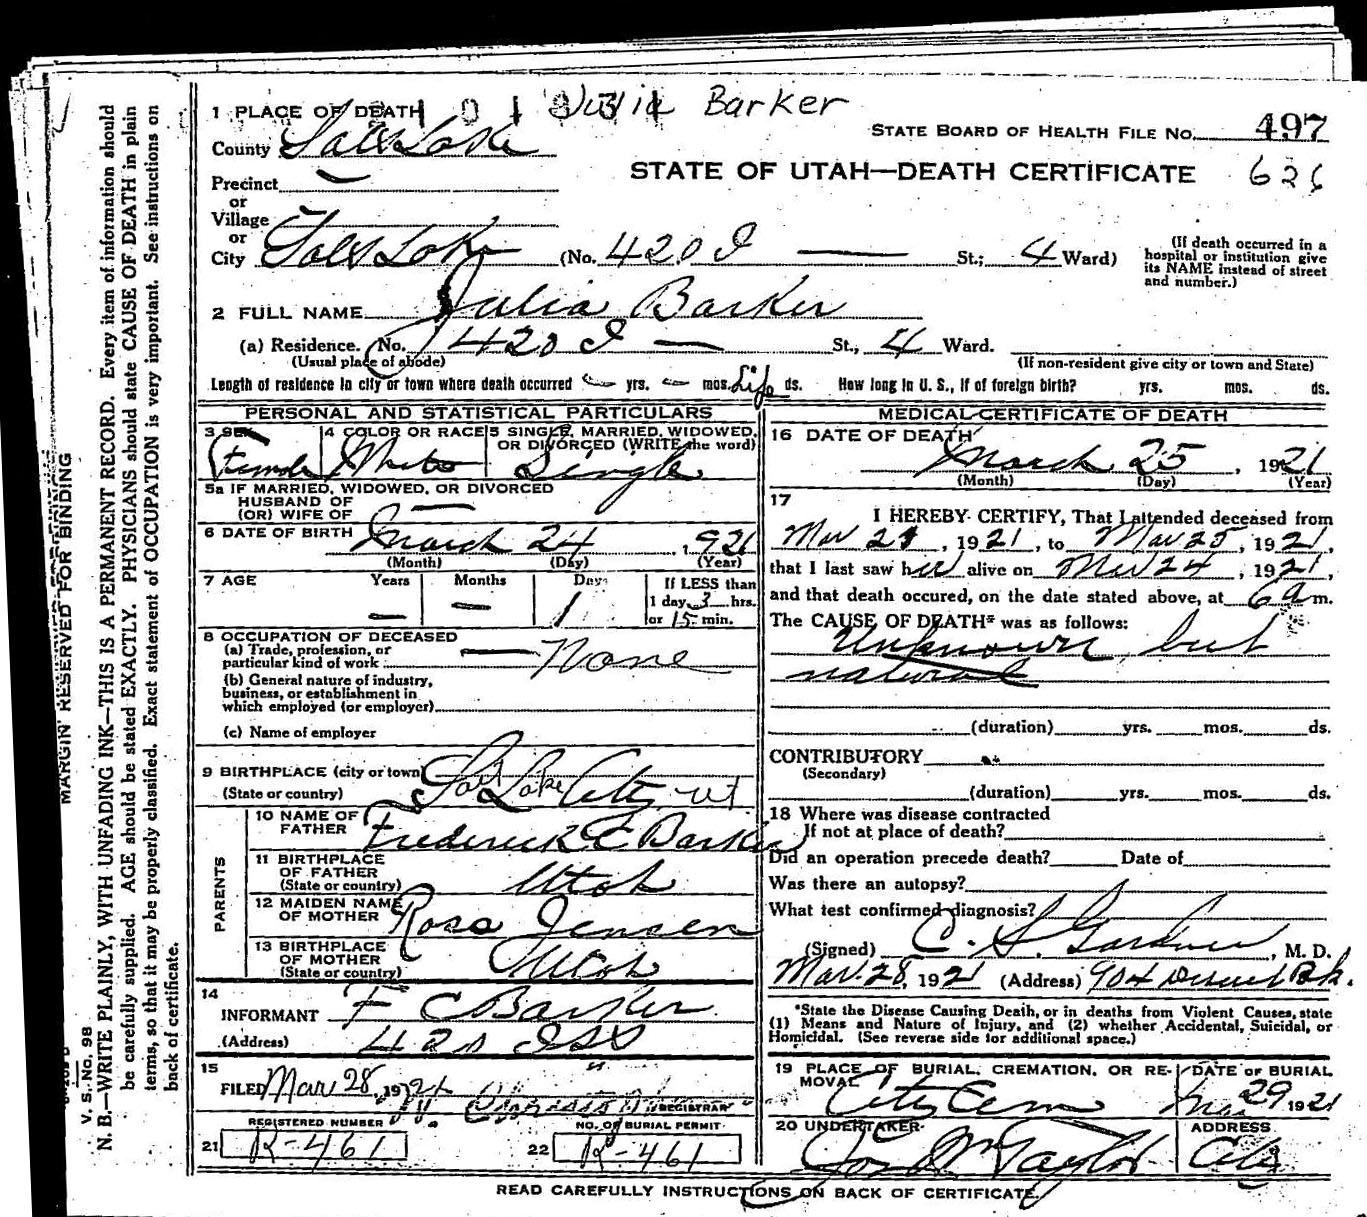 Julia Barker
1 PLACE OF DEATH
STATE BOARD OF HEALTH FILE No. 497
County Salt Lake
STATE OF UTAH—DEATH CERTIFICATE 626
Precinct
or
Village
or
City Salt Lake (No. 420 I St.; 4 Ward)
(If death occurred in a
hospital or institution give
its NAME instead of street
and number.)
2 FULL NAME Julia Barker
(a) Residence. No. 420 I St., 4 Ward.
(Usual place of abode) (If non-resident give city or town and State)
Length of residence in city or town where death occurred yrs. mos. Life ds. How long in U. S., if of foreign birth? yrs. mos. ds.
PERSONAL AND STATISTICAL PARTICULARS
3 SEX 4 COLOR OR RACE 5 SINGLE, MARRIED, WIDOWED,
OR DIVORCED (WRITE the word)
Female White Single
5a IF MARRIED, WIDOWED, OR DIVORCED
HUSBAND OF
(OR) WIFE OF
6 DATE OF BIRTH March 24, 1921
(Month) (Day) (Year)
7 AGE Years Months Days If LESS than
— — 1 1 day 3 hrs.
or 15 min.
8 OCCUPATION OF DECEASED
(a) Trade, profession, or
particular kind of work None
(b) General nature of industry,
business, or establishment in
which employed (or employer)
(c) Name of employer
9 BIRTHPLACE (city or town) Salt Lake City Ut
(State or country)
PARENTS
10 NAME OF
FATHER Frederick C Barker
11 BIRTHPLACE
OF FATHER
(State or country) Utah
12 MAIDEN NAME
OF MOTHER Rosa Jensen
13 BIRTHPLACE
OF MOTHER
(State or country) Utah
14
INFORMANT F C Barker
(Address) 420 I St
15
FILED Mar 28, 1921
REGISTRAR
REGISTERED NUMBER NO. OF BURIAL PERMIT
21 R-461 22 R-461
MEDICAL CERTIFICATE OF DEATH
16 DATE OF DEATH
March 25, 1921
(Month) (Day) (Year)
17
I HEREBY CERTIFY, That I attended deceased from
Mar 24, 1921, to Mar 25, 1921,
that I last saw her alive on Mar 24, 1921,
and that death occured, on the date stated above, at 6 a m.
The CAUSE OF DEATH* was as follows:
Unknown, but
natural
(duration) yrs. mos. ds.
CONTRIBUTORY
(Secondary)
(duration) yrs. mos. ds.
18 Where was disease contracted
If not at place of death?
Did an operation precede death? Date of
Was there an autopsy?
What test confirmed diagnosis?
(Signed) C. S. Gardner, M. D.
Mar. 28, 1921 (Address) 904 Deseret Bk.
*State the Disease Causing Death, or in deaths from Violent Causes, state
(1) Means and Nature of Injury, and (2) whether Accidental, Suicidal, or
Homicidal. (See reverse side for additional space.)
19 PLACE OF BURIAL, CREMATION, OR RE-
MOVAL City Cem
DATE OF BURIAL
Mar 29 1921
20 UNDERTAKER
Jos Wm Taylor
ADDRESS
City
READ CAREFULLY INSTRUCTIONS ON BACK OF CERTIFICATE
MARGIN RESERVED FOR BINDING
V. S. No. 98
N. B.—WRITE PLAINLY, WITH UNFADING INK—THIS IS A PERMANENT RECORD. Every item of information should
be carefully supplied. AGE should be stated EXACTLY. PHYSICIANS should state CAUSE OF DEATH in plain
terms, so that it may be properly classified. Exact statement of OCCUPATION is very important. See instructions on
back of certificate.